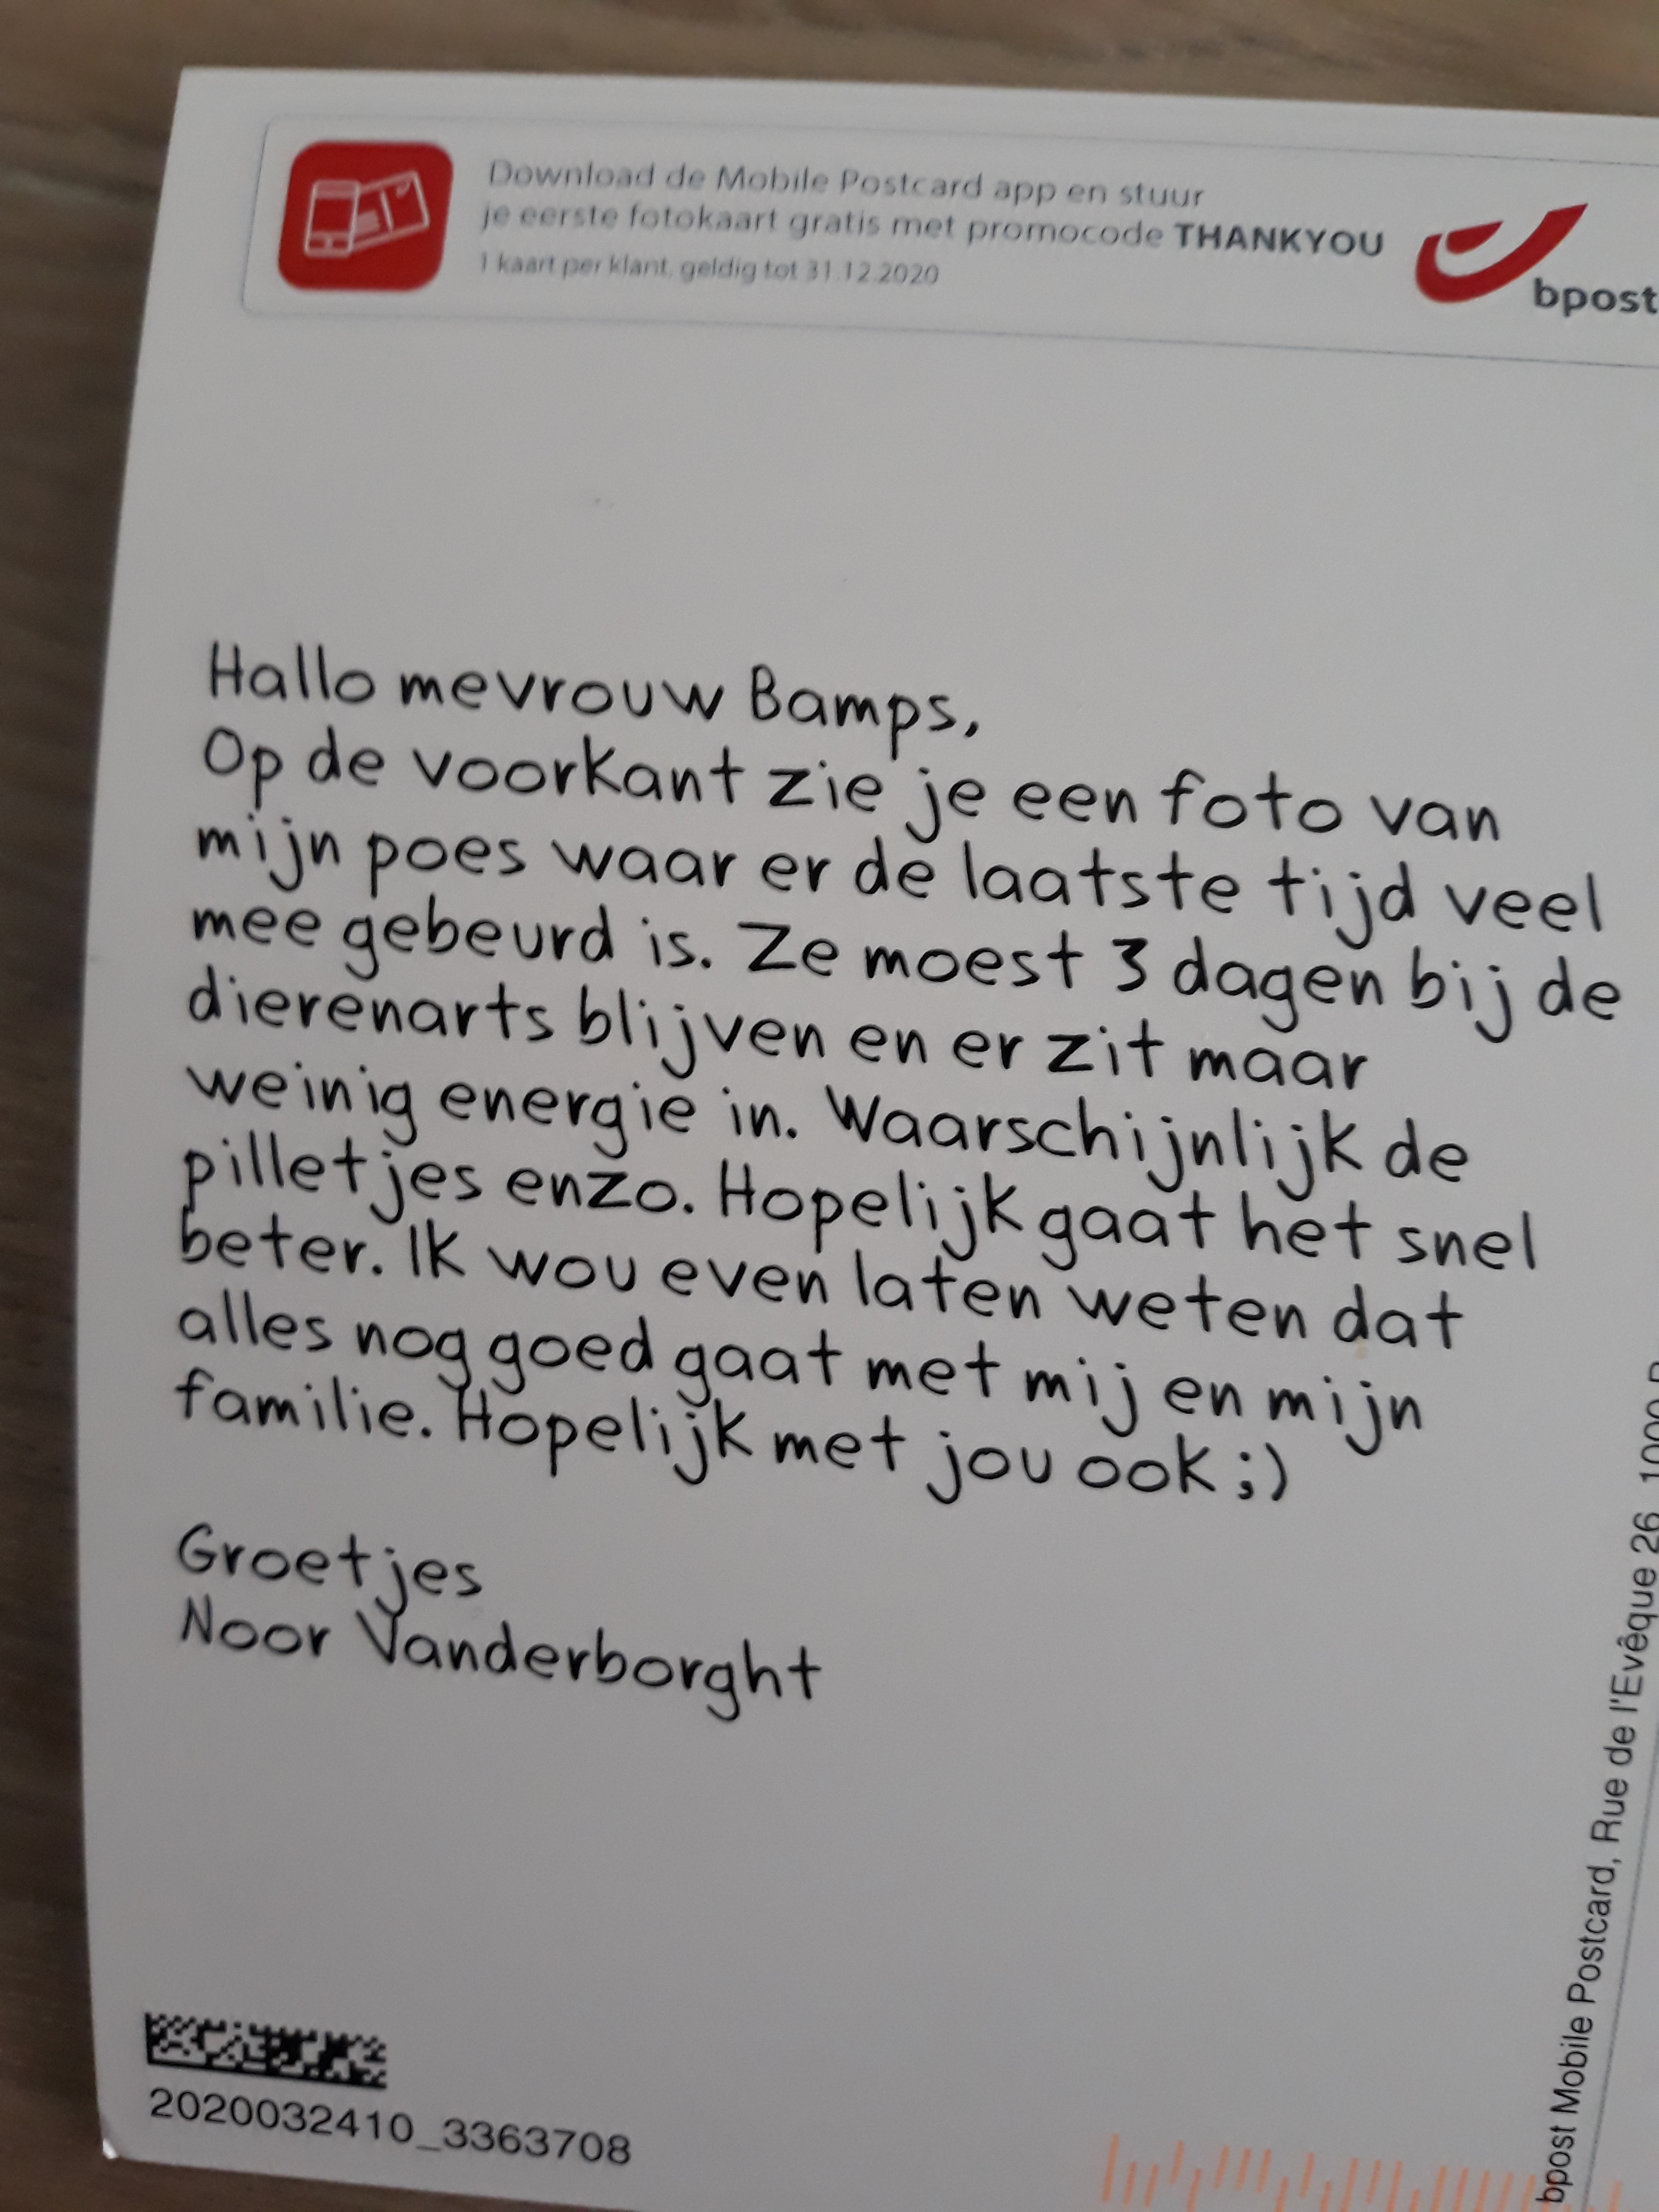 Download de Mobile Postcard app en stuur
je eerste fotokaart gratis met promocode THANKYOU
1 kaart per klant, geldig tot 31.12.2020
bpost
Hallo mevrouw Bamps,
Op de voorkant zie je een foto van
mijn poes waar er de laatste tijd veel
mee gebeurd is. Ze moest 3 dagen bij de
dierenarts blijven en er zit maar
weinig energie in. Waarschijnlijk de
pilletjes enzo. Hopelijk gaat het snel
beter. Ik wou even laten weten dat
alles nog goed gaat met mij en mijn
familie. Hopelijk met jou ook ;)
Groetjes
Noor Vanderborght
2020032410_3363708
bpost Mobile Postcard, Rue de l'Evêque 26, 1000